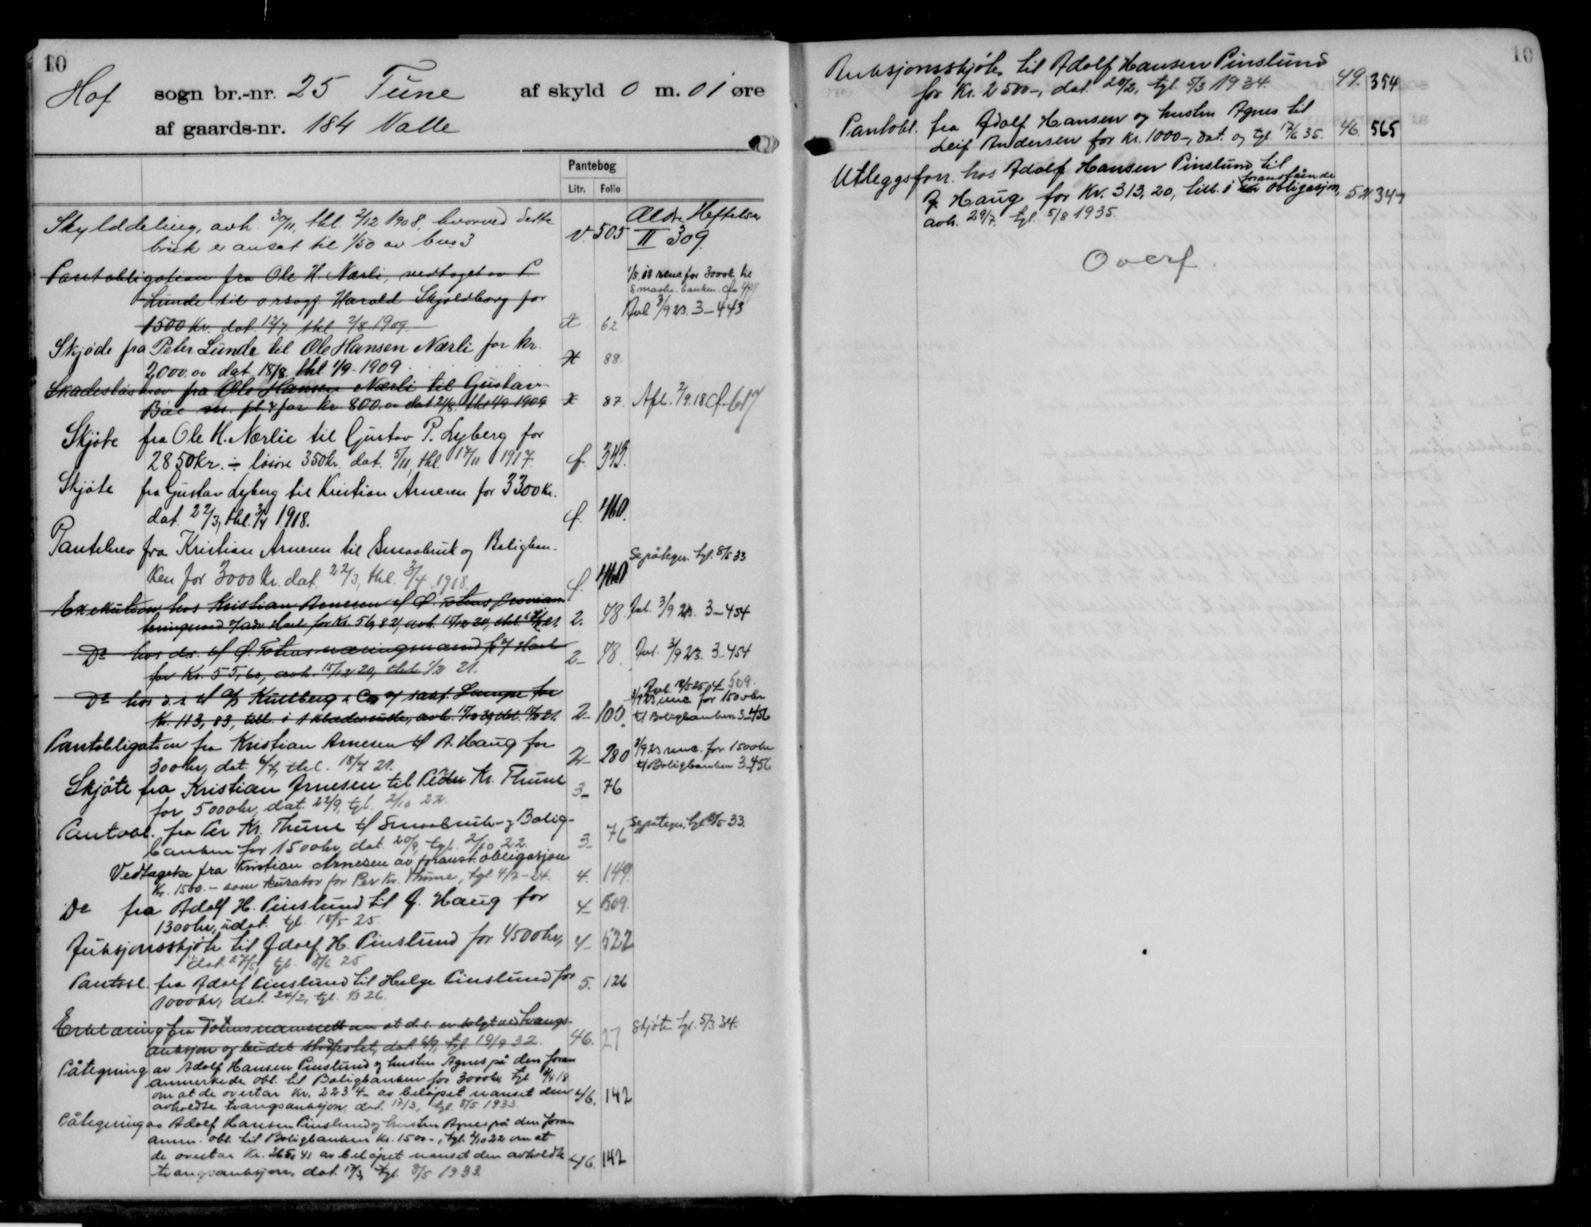 10
Hof sogn br.-nr. 25 Tune af skyld 0 m. 01 øre
af gaards-nr. 184 Valle
Pantebog
Litr. Folio
Ældre Heftelser
Skylddeling, avh. 30/11, thl. 2/12 1908, hvorved dette
bruk er ansat til 1/50 av bno 3 v. 505 II 309
Pantobligation fra Ole H. Nærli, vedtaget av P.
Lunde til o.r.sagf. Harald Skjoldborg for
1500 Kr. dat. 12/7 thl. 2/8 1909. 62 Avl. 3/9 23. 3-443
Skjøde fra Peter Lunde til Ole Hansen Nærli for kr.
2000.00 dat. 18/8 thl 1/9 1909 88
Skadesløsbrev fra Ole Hansen Nærli til Gustav
for kr 800.00 dat 21/8 thl 1/9 1909 87. Afl. 2/9.18 f-617
Skjøte fra Ole H. Nærlie til Gustav P. Lyberg for
2850 kr. ÷ løsøre 350 kr. dat. 5/11, thl. 17/11 1917. f. 343.
Skjøte fra Gustav Lyberg til Kristian Arnesen for 3300 Kr.
dat. 22/3, thl. 3/4 1918. f. 460.
Pantebrev fra Kristian Arnesen til Smaabruk og Boligban-
ken for 3000 Kr. dat. 22/3, thl. 3/4 1918 f. 460 Se påtegn. tgl. 8/5 33
Exekution hos Kristian Arnesen
for Kr. 56,82, avh. 15/12 20, 2. 78. Avl. 3/9 23. 3-454
Do hos ds.
for Kr. 55,60, avh. 15/12 20, thl. 1/2 21. 2- 78. Avl. 3/9 23. 3-454
Do hos d.s. tf A/S Kullberg & Co
Kr. 113,83, 2- 100. t/ Boligbanken 3-456
Pantobligation fra Kristian Arnesen tf A. Haug for
300 kr, dat. 4/4, thl. 18/4 21. 2- 280 3/9 23 unc. for 1500 kr
t/ Boligbanken 3-456
Skjøte fra Kristian Arnesen til Peder Kr. Thune
for 5000 kr, dat. 22/9, tgl. 2/10 22. 3- 76
Pantobl. fra Per Kr. Thune tf Smaabruk- og Bolig-
banken for 1500 kr, dat. 20/9, tgl. 2/10 22. 3- 76 Se påtegn. tgl. 8/5 33.
Vedtagelse fra Kristian Arnesen av foranst. obligasjon
Kr. 1500.- som kurator for Per Kr. Thune, tgl 4/2-24. 4. 149.
Do fra Adolf H. Pinslund til J. Haug for
1300 kr, udat. tgl. 18/5 25. 4- 509.
Auksjonsskjøte til Adolf H. Pinslund for 4500 kr,
dat. 27/5, tgl. 8/6 25 4- 522
Pantobl. fra Adolf Pinslund til Helge Pinslund for
1000 kr, dat. 24/2, tgl. 1/3 26. 5. 126
Erklæring fra Totens namsrett om at d.e. er solgt ved tvangs-
auksjon og budet stadfestet, dat. 6/9, tgl. 19/9 32. 46. 27 Skjøte tgl. 5/3 34.
Påtegning av Adolf Hansen Pinslund og hustru Agnes på den foran
anmerkede obl. til Boligbanken for 3000 kr. tgl 3/4 18
om at de overtar Kr. 2234.- av beløpet uanset den
avholdte tvangsauksjon, dat. 17/3, tgl. 8/5 1933. 46. 142
Påtegning av Adolf Hansen Pinslund og hustru Agnes på den foran
anm. obl. til Boligbanken Kr. 1500.-, tgl. 2/10 22 om at
de overtar Kr. 265,41 av beløpet uanset den avholdte
tvangsauksjon, dat. 17/3, tgl. 8/5 1933. 46. 142
10
Auksjonsskjøte til Adolf Hansen Pinslund
for Kr. 2500-, dat. 28/2, tgl. 5/3 1934. 49. 354
Pantobl. fra Adolf Hansen og hustru Agnes til
Leif Andersen for Kr. 1000-, dat. og tgl. 17/6 35. 46. 565
Utleggsforr. hos Adolf Hansen Pinslund til
J. Haug for Kr. 313,20, till. i foranstående obligasjon,
avh. 29/7, tgl. 5/8 1935. 52 347
Overf